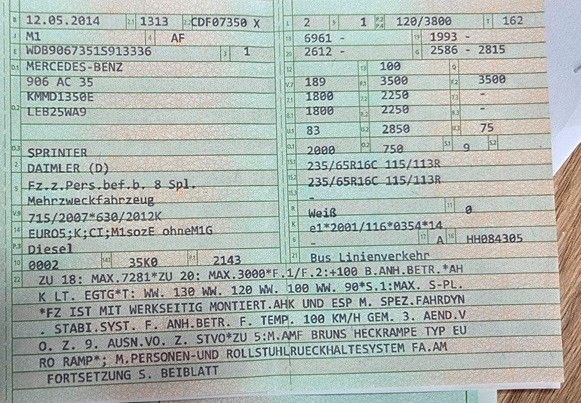 B 12.05.2014 2.1 1313 2.2 CDF07350 X
J M1 4 AF
E WDB9067351S913336 3 1
D.1 MERCEDES-BENZ
906 AC 35
D.2 KMMD1350E
LEB25WA9
D.3 SPRINTER
2 DAIMLER (D)
5 Fz.z.Pers.bef.b. 8 Spl.
Mehrzweckfahrzeug
V.9 715/2007*630/2012K
14 EURO5;K;CI;M1sozE ohneM1G
P.3 Diesel
10 0002 14.1 35K0 P.1 2143
L 2 9 1 P.2 P.4 120/3800 T 162
18 6961 - 19 1993 -
20 2612 - G 2586 - 2815
12 - 13 100 Q -
V.7 189 F.1 3500 F.2 3500
7.1 1800 7.2 2250 7.3 -
8.1 1800 8.2 2250 8.3 -
U.1 83 U.2 2850 U.3 75
O.1 2000 O.2 750 S.1 9 S.2
15.1 235/65R16C 115/113R
15.2 235/65R16C 115/113R
15.3 -
R Weiß 11 0
K e1*2001/116*0354*14
6 - 17 A 16 HH084305
21 Bus Linienverkehr
22 ZU 18: MAX.7281*ZU 20: MAX.3000*F.1/F.2:+100 B.ANH.BETR.*AH
K LT. EGTG*T: WW. 130 WW. 120 WW. 100 WW. 90*S.1:MAX. S-PL.
*FZ IST MIT WERKSEITIG MONTIERT.AHK UND ESP M. SPEZ.FAHRDYN
. STABI.SYST. F. ANH.BETR. F. TEMP. 100 KM/H GEM. 3. AEND.V
O. Z. 9. AUSN.VO. Z. STVO*ZU 5:M.AMF BRUNS HECKRAMPE TYP EU
RO RAMP*; M.PERSONEN-UND ROLLSTUHLRUECKHALTESYSTEM FA.AM
FORTSETZUNG S. BEIBLATT